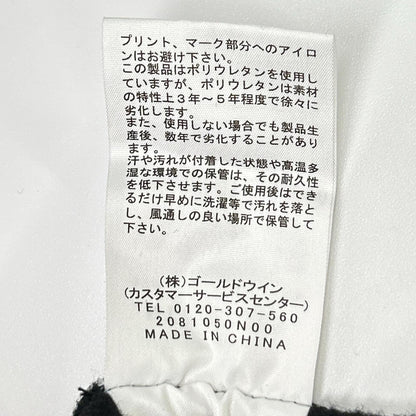 プリント、マーク部分へのアイロ
ンはお避け下さい。
この製品はポリウレタンを使用し
ていますが、ポリウレタンは素材
の特性上3年～5年程度で徐々に
劣化します。
また、使用しない場合でも製品生
産後、数年で劣化することがあり
ます。
汗や汚れが付着した状態や高温多
湿な環境での保管は、その耐久性
を低下させます。ご使用後はでき
るだけ早めに洗濯等で汚れを落と
し、風通しの良い場所で保管して
下さい。
(株)ゴールドウイン
(カスタマーサービスセンター)
TEL 0120-307-560
2081050N00
MADE IN CHINA